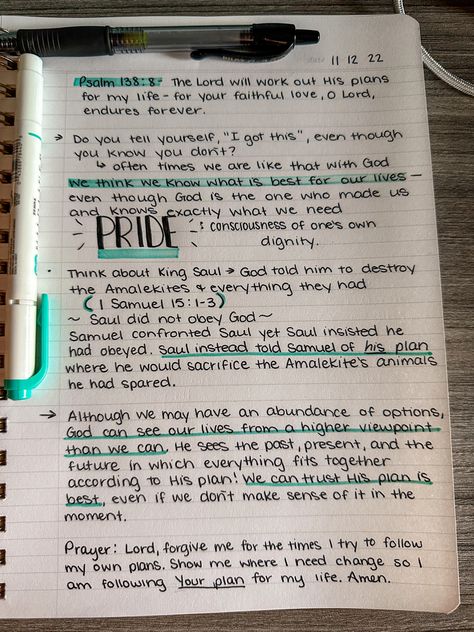 date 11 12 22
Psalm 138:8- The Lord will work out His plans
for my life - for your faithful love, O Lord,
endures forever.
→ Do you tell yourself, "I got this", even though
you know you don't?
↳ often times we are like that with God
We think we know what is best for our lives —
even though God is the one who made us
and knows exactly what we need
PRIDE : consciousness of one's own
dignity.
• Think about King Saul → God told him to destroy
the Amalekites & everything they had
(1 Samuel 15:1-3)
~ Saul did not obey God ~
Samuel confronted Saul yet Saul insisted he
had obeyed. Saul instead told Samuel of his plan
where he would sacrifice the Amalekite's animals
he had spared.
→ Although we may have an abundance of options,
God can see our lives from a higher viewpoint
than we can. He sees the past, present, and the
future in which everything fits together
according to His plan! We can trust His plan is
best, even if we don't make sense of it in the
moment.
Prayer: Lord, forgive me for the times I try to follow
my own plans. Show me where I need change so I
am following Your plan for my life. Amen.